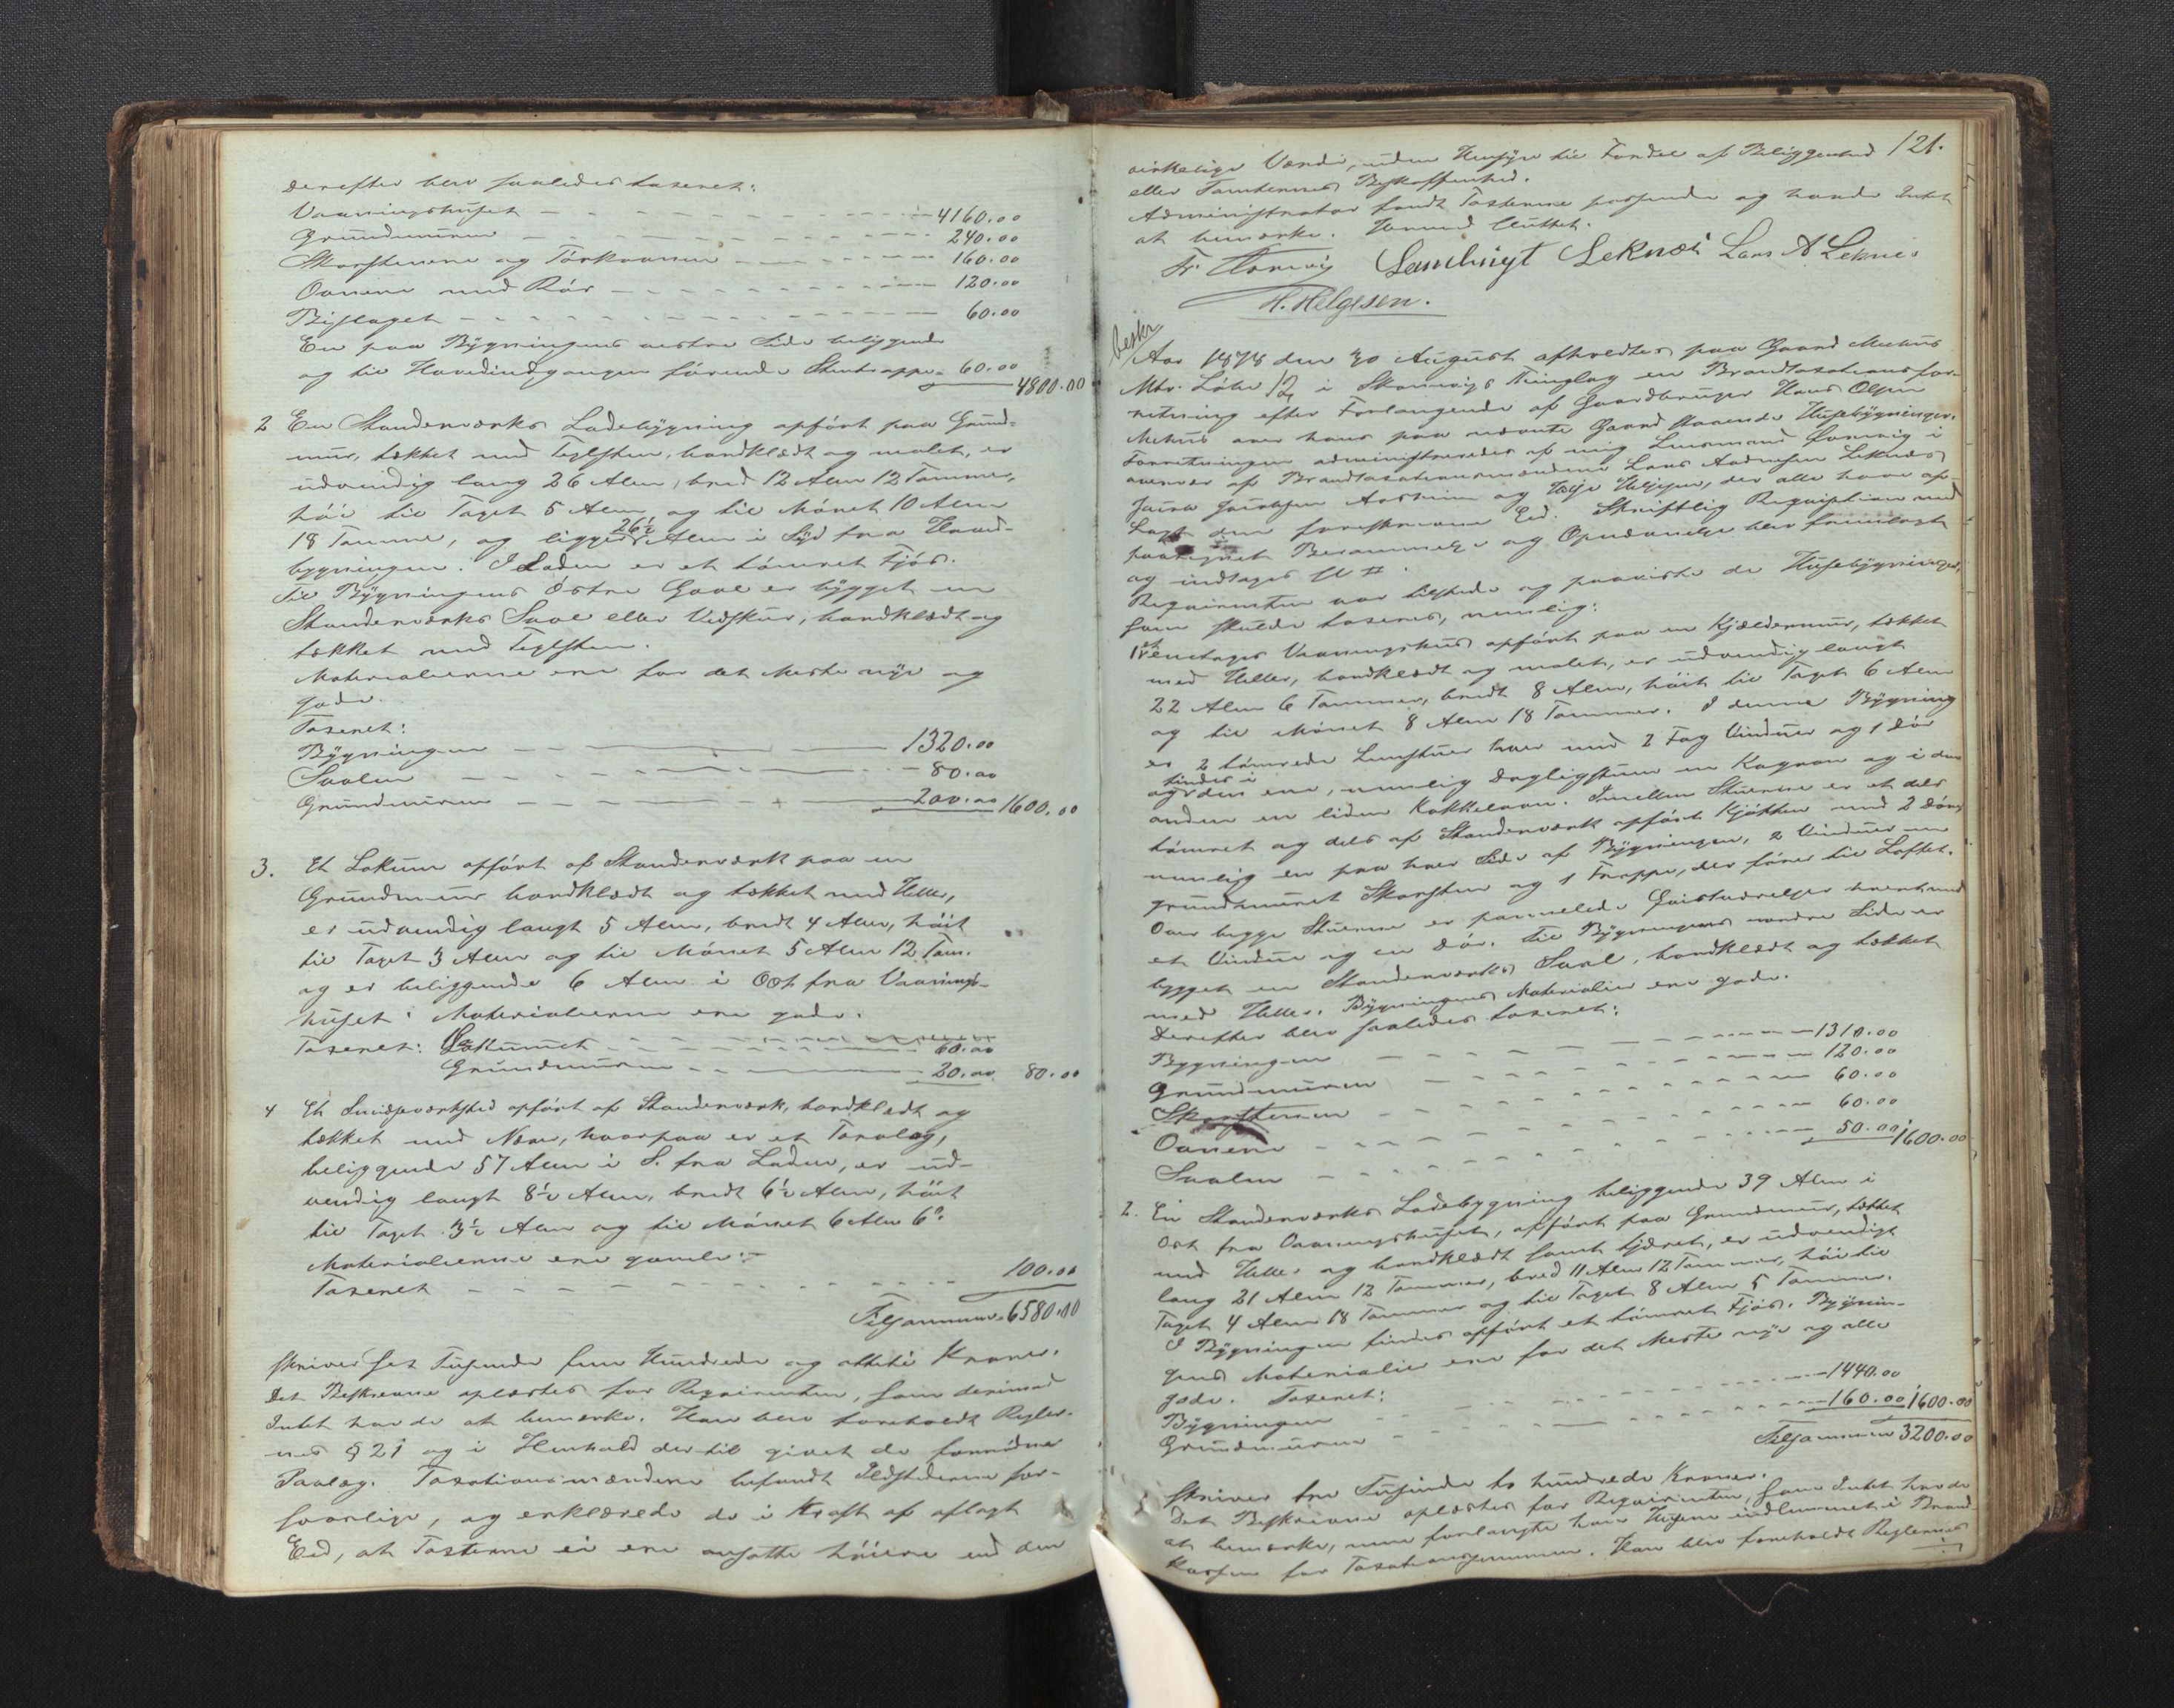 derefter blev saaledes taxeret:
Vaaningshuset 4160.00
Grundmuren 240.00
Skorstenene og Tørkeovnen 160.00
Ovnene med Rør 120.00
Bislaget 60.00
En paa Bygningens vestre Side beliggende
og til Hovedindgangen førende Stentrappe 60.00
4800.00
2 En Standerværks Ladebygning opført paa Grund-
mur, tækket med Teglsten, bordklædt og malet, er
udvendig lang 26 Alen, bred 12 Alen 12 Tommer,
høi til Taget 5 Alen og til Mønet 10 Alen
18 Tomme, og ligger 26½ Alen i Syd fra Hoved-
bygningen. I Laden er et tømret Fjøs.
Til Bygningens østre Gavl er bygget en
Standerværks Sval eller Vedskur, bordklædt og
tækket med Teglsten.
Materialierne ere for det Meste nye og
gode.
Taxeret:
Bygningen 1320.00
Svalen 80.00
Grundmuren 200.00 1600.00
3. Et Lokum opført af Standerværk paa en
Grundmuur bordklædt og tækket med Heller,
er udvendig langt 5 Alen, bredt 4 Alen, høit
til Taget 3 Alen og til Mønet 5 Alen 12 Tom.
og er beliggende 6 Alen i Ost fra Vaanings-
huset. Materialierne ere gode.
Taxeret: Lokumet 60.00
Grundmuren 20.00 80.00
4 Et Smideværksted opført af Standerværk, bordklædt og
tækket med Næver, hvorpaa er et Torvlag,
beliggende 57 Alen i S. fra Laden, er ud-
vendig langt 8½ Alen, bredt 6½ Alen, høit
til Taget 3½ Alen og til Mønet 6 Alen 6".
Materialierne ere gamle.
Taxeret 100.00
Tilsammen 6580.00
skriver sex Tusende fem Hundrede og otteti Kroner.
Det Beskrevne oplæstes for Requirenten, som derimod
Intet havde at bemærke. Han blev foreholdt Regler-
nes § 21 og i Henhold dertil givet de fornødne
Paalæg. Taxationsmændene befandt Ildstederne for-
svarlige, og erklærede de i Kraft af aflagt
Eed, at Taxterne ei ere ansatte høiere end den
121.
virkelige Værdi, uden Hensyn til Fordel af Beliggenhed
eller Tomternes Beskaffenhed.
Administrator fandt Taxterne passende og havde Intet
at bemærke. Hermed sluttet.
Lars A Leknes
H. Helgesen.
beskr
Aar 1878 den 30 August afholdtes paa Gaard Mehus
Mtr. Løbe i Skonevigs Thinglag en Brandtaxationsfor-
retning efter Forlangende af Gaardbruger Hans Olsen
Mehus over hans paa nævnte Gaard staaende Husebygninger.
Forretningen administreredes af mig Lensmand i
overvær af Brandtaxationsmændene Lars Leknes
og Helje Heljesen, der alle have af-
lagt den foreskrevne Eed. Skriftlig Requisition med
paategnet Berammelse og Opnævnelse blev fremlagt
og indtages
Requirenten var tilstede og paaviste de Husebygninger,
som skulde taxeres, nemlig:
1 et enetages Vaaningshus opført paa en Kjældermur, tækket
med Heller, bordklædt og malet, er udvendig langt
22 Alen 6 Tommer, bredt 8 Alen, høit til Taget 6 Alen
og til Mønet 8 Alen 18 Tommer. I denne Bygning
er 2 tømrede Lemstuer hver med 2 Fag Vinduer og 1 Dør
findes i
og den ene, nemlig Dagligstuen en Kogeovn og i den
anden en liden Kakkelovn. Imellem Stuerne er et dels
tømret og dels af Standerværk opført Kjøkken med 2 Døre
nemlig en paa hver Side af Bygningen, 2 Vinduer en
grundmuret Skorsten og 1 Trappe, der fører til Loftet.
Over begge Stuerne er panelede Qvistværelser hvert med
et Vindue og en Dør. Til Bygningens nordre Side er
bygget en Standerværks Sval, bordklædt og tækket
med Heller. Bygningens Materialier ere gode.
Derefter blev saaledes taxeret:
Bygningen 1310.00
Grundmuren 120.00
Skorstenen 60.00
Ovnene 60.00
Svalen 50.00 1600.00
2. En Standerværks Ladebygning beliggende 39 Alen i
Ost fra Vaaningshuset, opført paa Grundmur, tækket
med Heller og bordklædt samt tjæret, er udvendigt
lang 21 Alen 12 Tommer, bred 11 Alen 12 Tommer, høi til
Taget 4 Alen 18 Tommer og til Taget 8 Alen 5 Tommer.
I Bygningen findes opført et tømret Fjøs. Bygnin-
gens Materialier ere for det Meste nye og alle
gode. Taxeret:
Bygningen 1440.00
Grundmuren 160.00 1600.00
Tilsammen 3200.00
skriver tre Tusinde to hundrede Kroner.
Det Beskrevne oplæstes for Requirenten, som Intet havde
at bemærke, men forlangte han Husene indlemmet i Brand-
kassen for Taxationssummen. Han blev foreholdt Reglernes